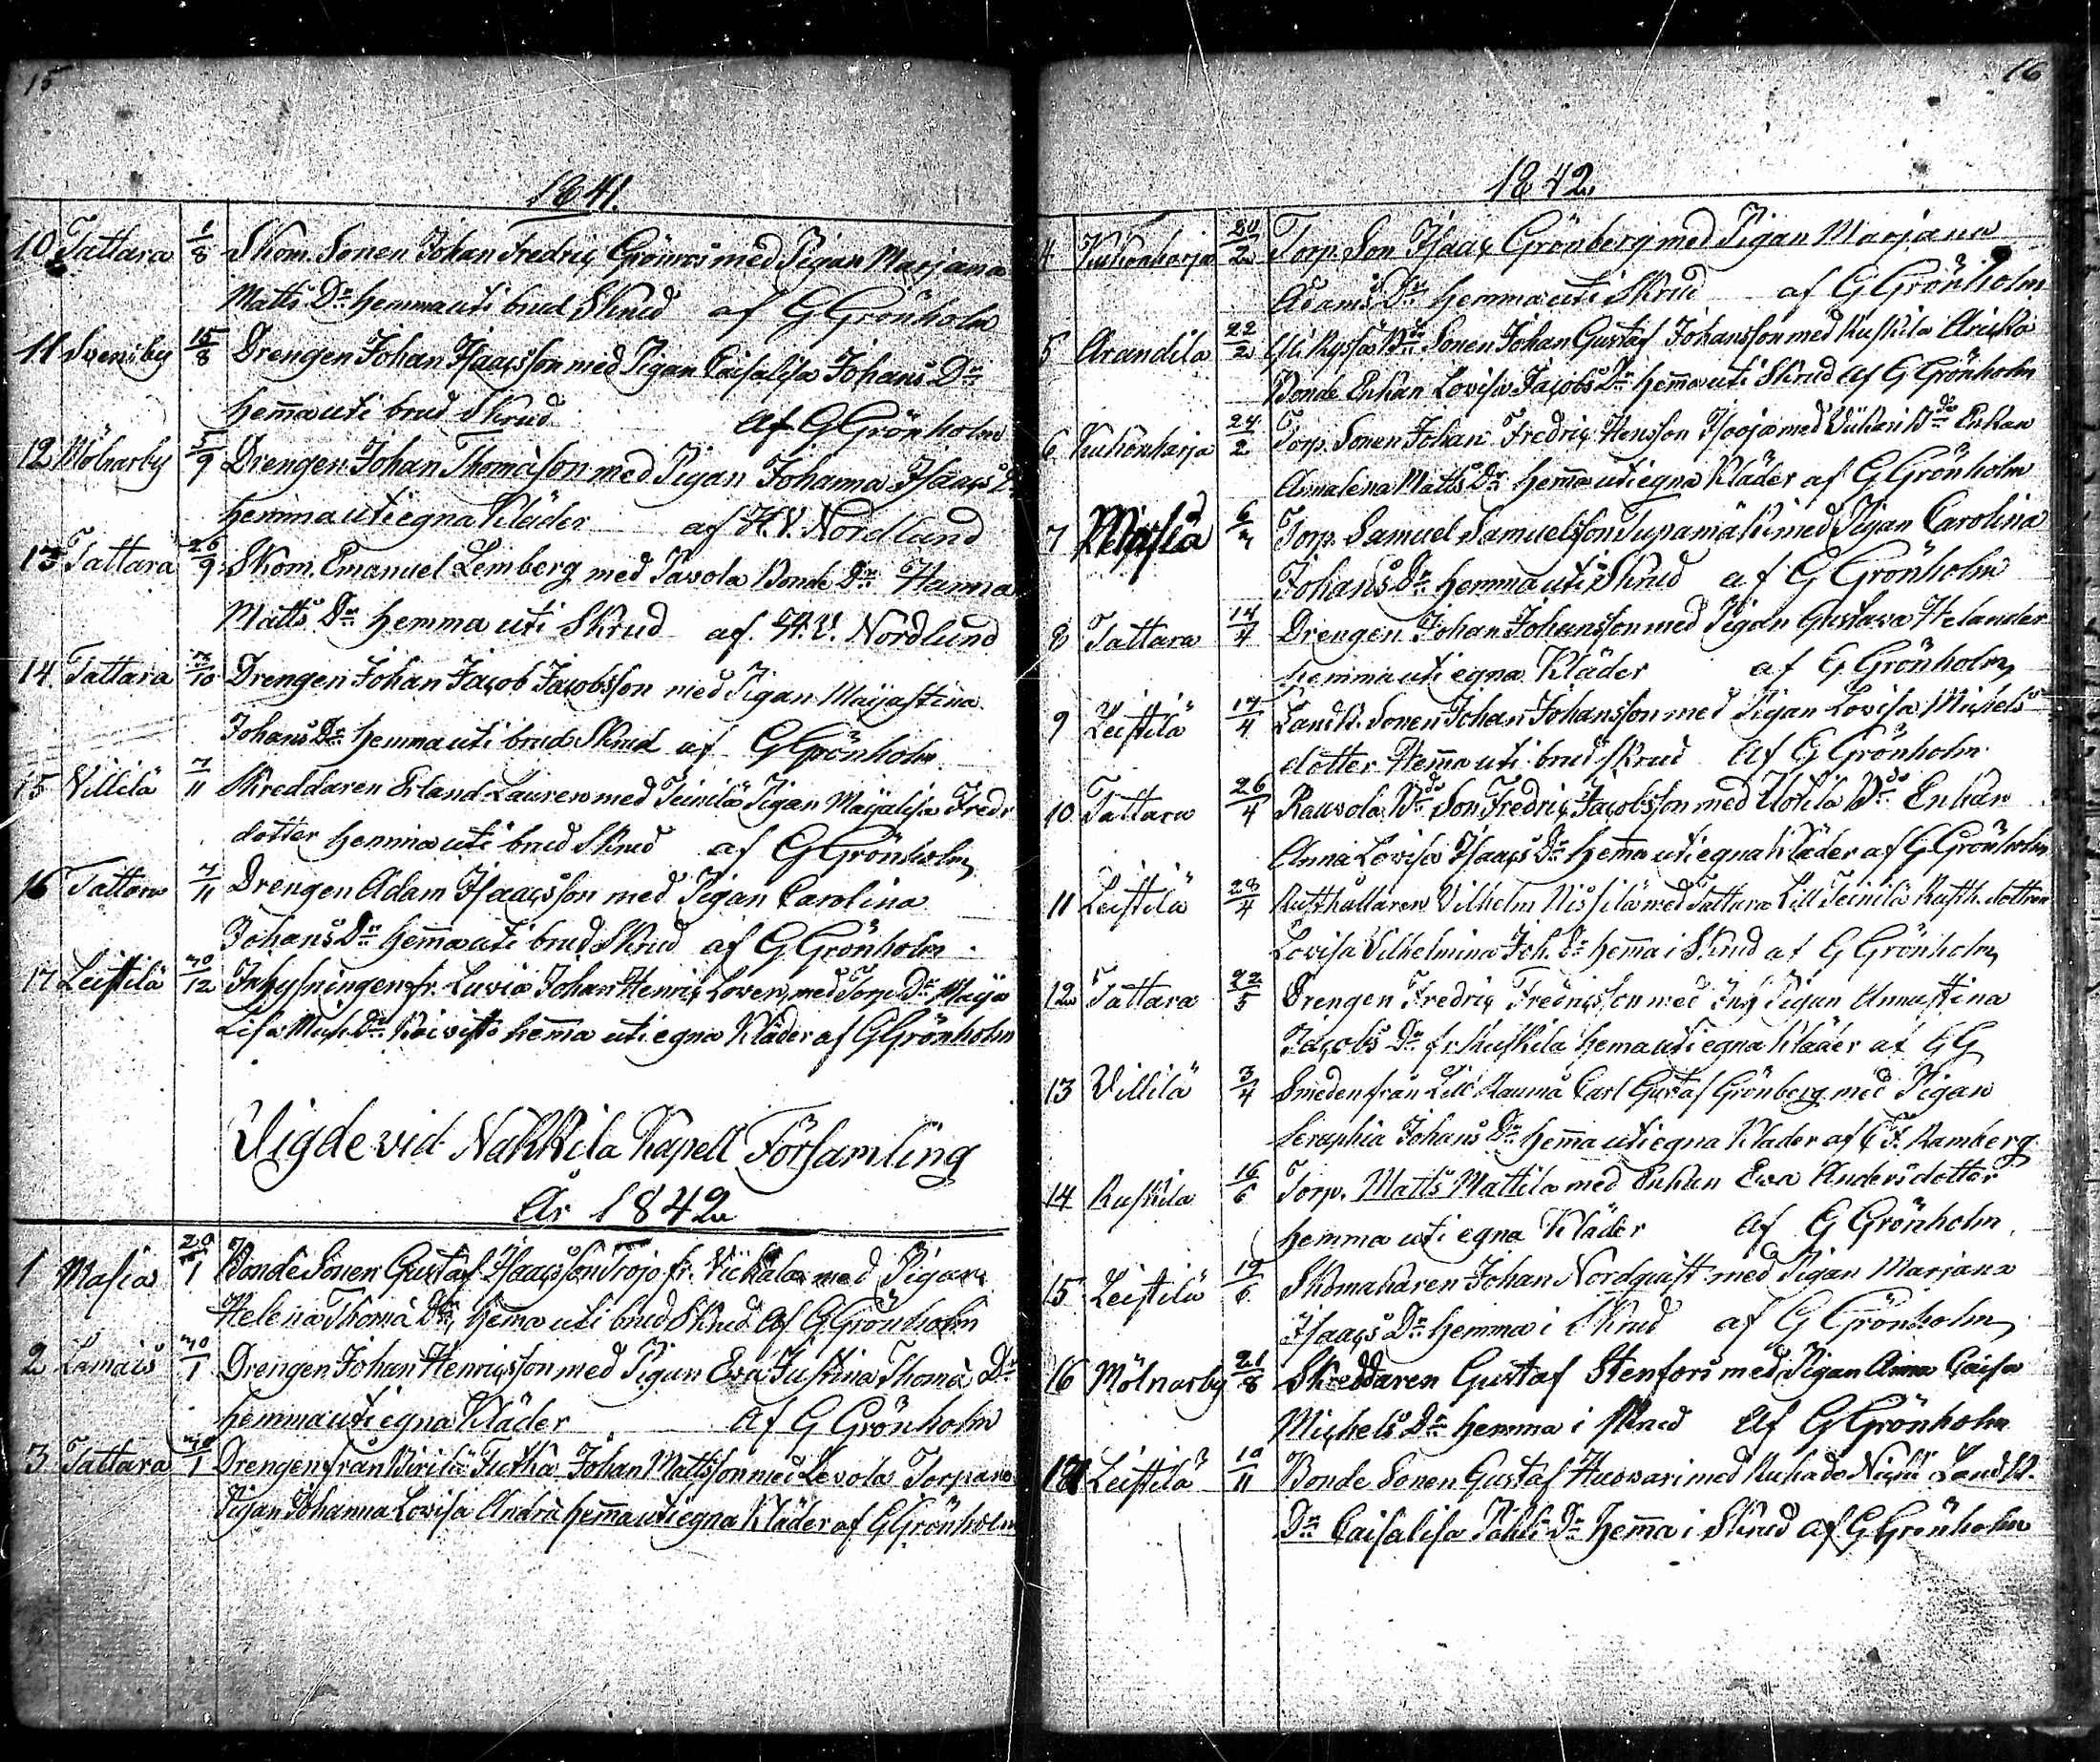 15
1841.
10 Tattara 1/8 Skom. Sonen Johan Fredric Grönroos med Pigan Marjana
Matts Dr hemma uti brud Skrud af G Grönholm
11 Svensby 15/8 Drengen Johan Isaacsson med Pigan Caisalisa Johans Dr
hem̄a uti brud Skrud af G Grönholm
12 Mölnarby 5/9 Drengen Johan Thomasson med Pigan Johanna Isaacs Dr
hemma uti egna Kläder af H.V. Nordlund
13 Tattara 26/9 Skom. Emanuel Lemberg med Pavola Bonde Dr Hanna
Matts Dr hemma uti Skrud af H.V. Nordlund
14 Tattara 3/10 Drengen Johan Jacob Jacobsson med Pigan Maijastina
Johans Dr hemma uti brud Skrud af G Grönholm
15 Villilä 7/11 Skreddaren Erland Lauren med Teinilä Pigan Maijalisa Fredr
dotter hemma uti brud Skrud af G Grönholm
16 Tattara 7/11 Drengen Adam Isaacsson med Pigan Carolina
Johans Dr hem̄a uti brud Skrud af G Grönholm
17 Leistilä 30/12 Inhysningen fr. Luvia Johan Henric Loven med Torp. Dr Maija
Lisa Mich. Dr Koivisto hem̄a uti egna Kläder af G Grönholm
Vigde vid Nakkila Kapell Församling
År 1842
1 Masia 20/1 Bonde Sonen Gustaf Isaacsson Trojo fr. Viikala med Pigan
Helena Thoma Dr hema uti brud Skrud af G Grönholm
2 Lamais 30/1 Drengen Johan Henricsson med Pigan Eva Justina Thoma Dr
hemma uti egna Kläder af G Grönholm
3 Tattara 30/1 Drengen från Birilä Johan Mattsson med Levola Torpare
Pigan Johanna Lovisa Andra hem̄a uti egna Kläder af G Grönholm
16
1842
4 Kukonharja 20/2 Torp. Son Isaac Grönberg med Pigan Marjana
Adams Dr hemma uti Skrud af G Grönholm
5 Arandila 22/2 Sonen Johan Gustaf Johansson med Ruskila
Bonde Enkan Lovisa Jacobs Dr hem̄a uti Skrud af G Grönholm
6 Kukonharja 24/2 Torp. Sonen Johan Fredric Hensson med Enkan
Annalena Matts Dr hem̄a uti egna Kläder af G Grönholm
7 6/3 Torp. Samuel Samuelsson Tupamäki med Pigan Carolina
Johans Dr hemma uti Skrud af G Grönholm
8 Tattara 14/4 Drengen Johan Johansson med Pigan Gustava Helander
hemma uti egna Kläder af G Grönholm
9 Leistilä 17/4 Landb. Sonen Johan Johansson med Pigan Lovisa Michels
dotter Hem̄a uti brud skrud af G Grönholm
10 Tattara 26/4 Rauvola Bde Son Fredric Jacobsson med Uotila Bde Enkan
Anna Lovisa Isaacs Dr hem̄a uti egna Kläder af G Grönholm
11 Leistilä 28/4 Rusthållaren Vilhelm Nissilä med Tattara Lill Teinilä Rusth. dottren
Lovisa Vilhelmina Joh. Dr hem̄a i Skrud af G Grönholm
12 Tattara 22/5 Drengen Fredric Fredricsson med Inh Pigan Annastina
Jacobs Dr fr. Ruskila hema uti egna Kläder af G G
13 Villilä 3/4 Smeden från Lill Raumå Carl Gustaf Grönberg med Pigan
Seraphia Johans Dr hem̄a uti egna Kläder af C F. Ramberg
14 Ruskila 16/6 Torp. Matts Mattila med Enkan Eva Andersdotter
hemma uti egna Kläder af G Grönholm
15 Leistilä 19/6 Skomakaren Johan Nordqvist med Pigan Marjana
Isaacs Dr hemma i Skrud af G Grönholm
16 Mölnarby 21/8 Skreddaren Gustaf Stenfors med Pigan Anna Caisa
Michels Dr hemma i Skrud af G Grönholm
17 Leistilä 10/11 Bonde Sonen Gustaf Huovari med Landb.
Dr Caisalisa Påhls Dr hem̄a i Skrud af G Grönholm